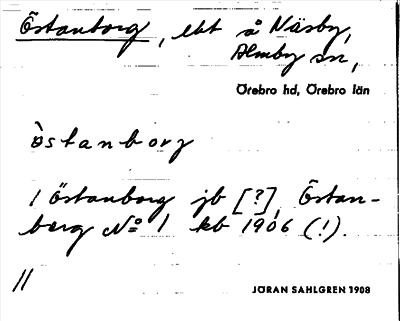 Östanborg, ebt å Näsby,
Almby sn,
Örebro hd, Örebro län
östanborg
1 Östanborg jb [?], Östan-
borg No 1 kb 1906 (!).
//
JÖRAN SAHLGREN 1908